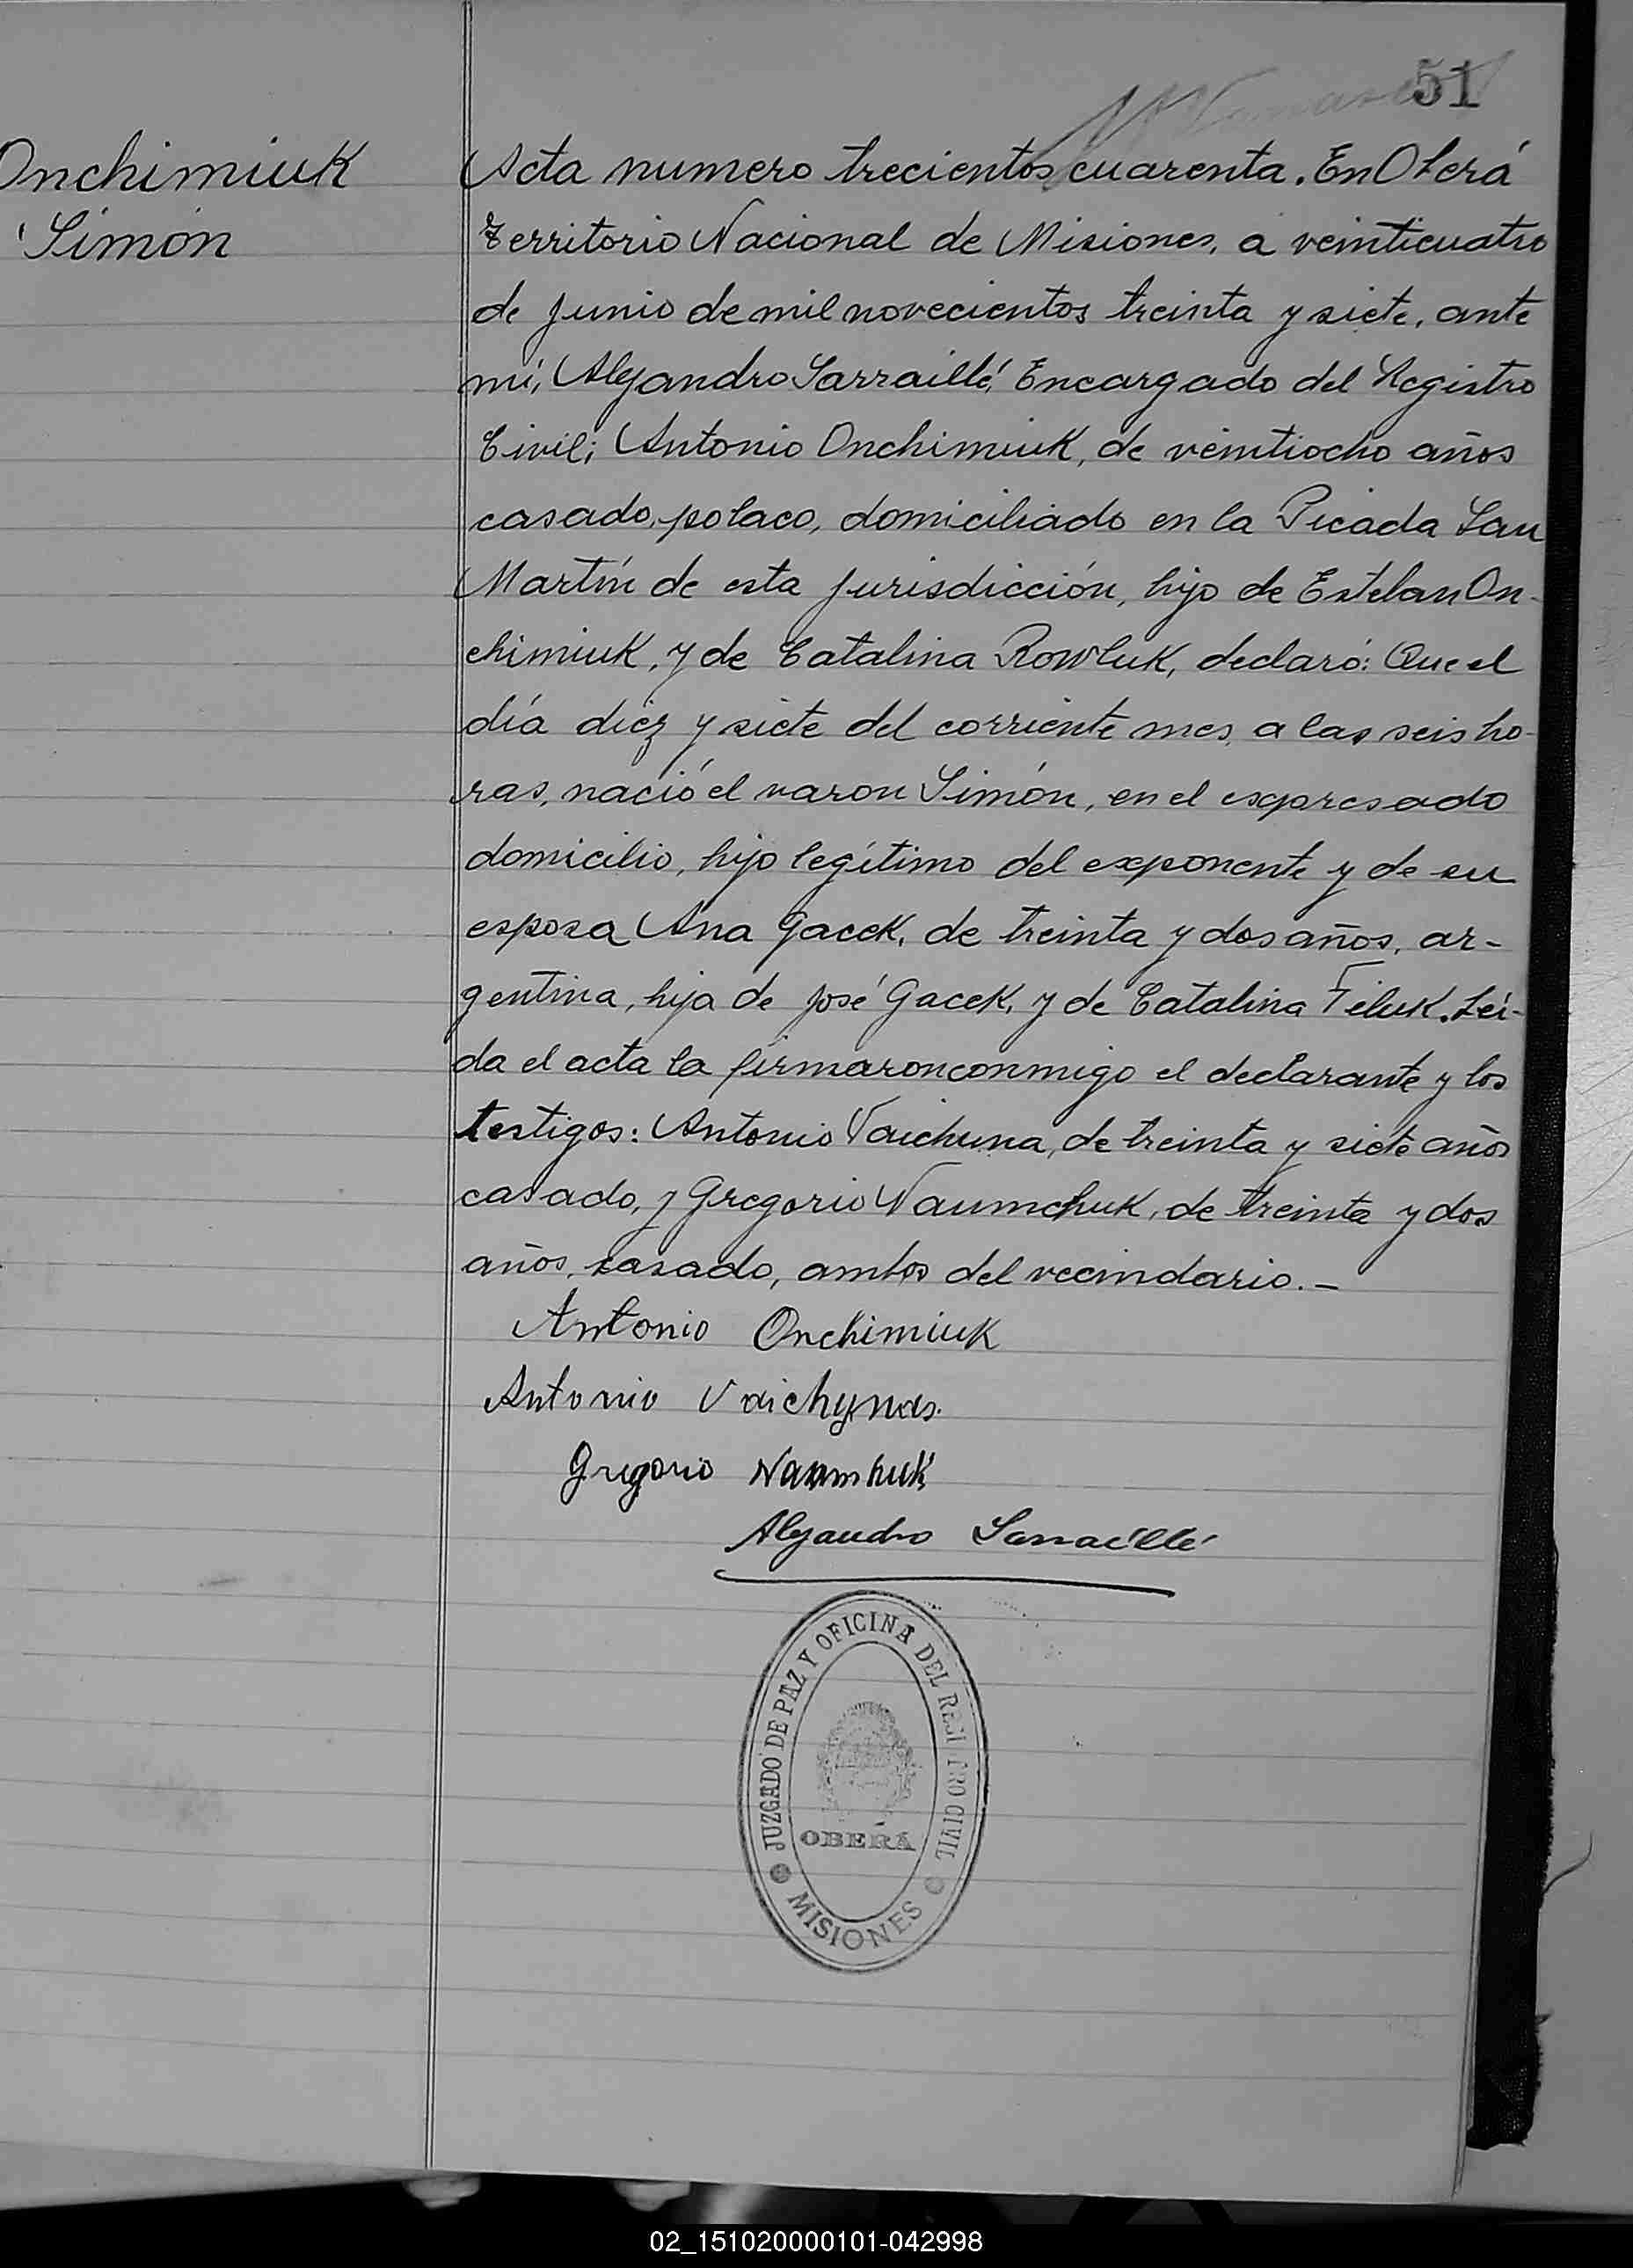 51
Onchimiuk
Simón
Acta numero trecientos cuarenta. En Oberá
Territorio Nacional de Misiones, a veinticuatro
de junio de mil novecientos treinta y siete, ante
mí, Alejandro Sarraillé, Encargado del Registro
Civil; Antonio Onchimiuk, de veintiocho años
casado, polaco, domiciliado en la Picada San
Martín de esta jurisdicción, hijo de Esteban On-
chimiuk, y de Catalina Rowluk, declaró: Que el
día diez y siete del corriente mes, a las seis ho-
ras, nació el varon Simón, en el expresado
domicilio, hijo legítimo del exponente y de su
esposa Ana Gacek, de treinta y dos años, ar-
gentina, hija de José Gacek, y de Catalina Feluk. Leí-
da el acta la firmaron conmigo el declarante y los
testigos: Antonio Vaichuna, de treinta y siete años
casado, y Gregorio Naumchuk, de treinta y dos
años, casado, ambos del vecindario. —
Antonio Onchimiuk
Antonio Vaichynas.
Gregorio Naumhuk
Alejandro Sarraillé
JUZGADO DE PAZ Y OFICINA DEL REJISTRO CIVIL
OBERÁ
MISIONES
02_151020000101-042998